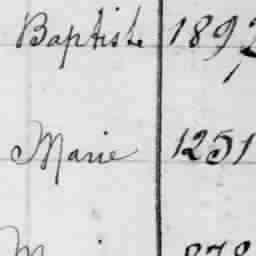 Baptiste 1892
Marie 1251